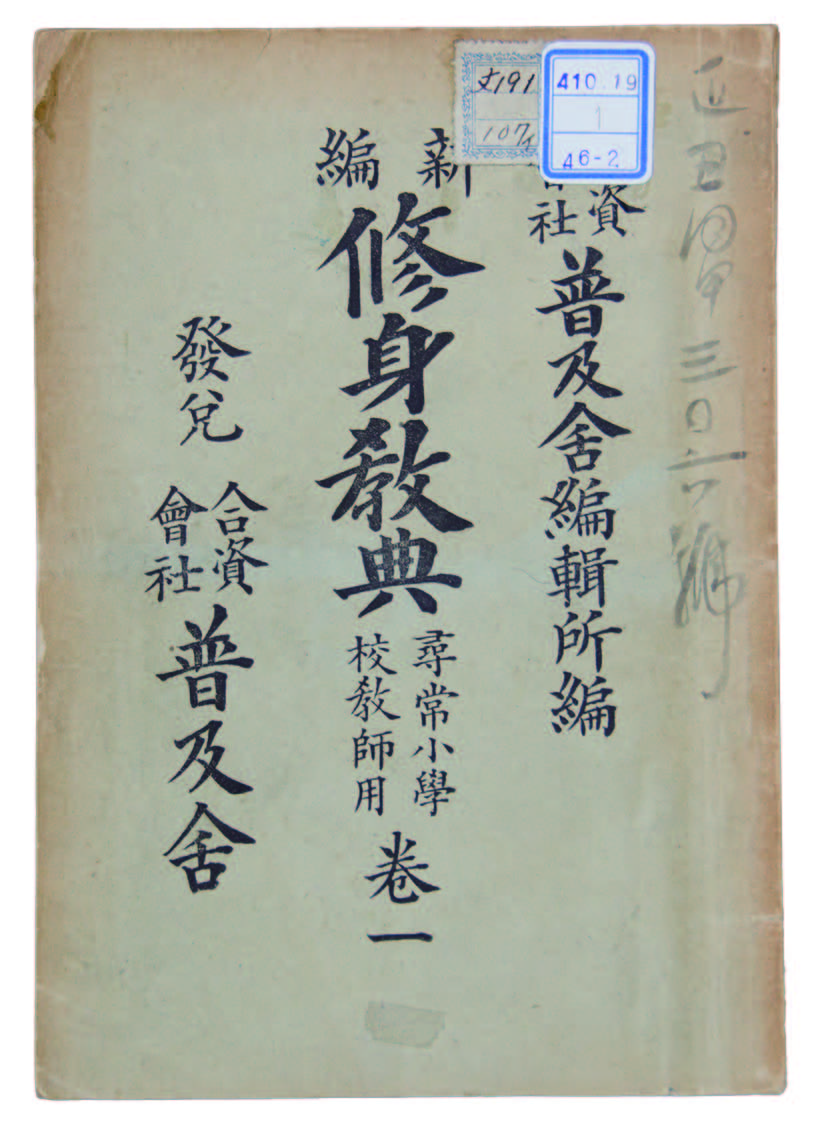 三〇六號
資
社
普及舍編輯所編
新編
修身教典
尋常小學
校教師用
卷一
發兌
合資
會社
普及舍
410.19
1
46-2
191
107